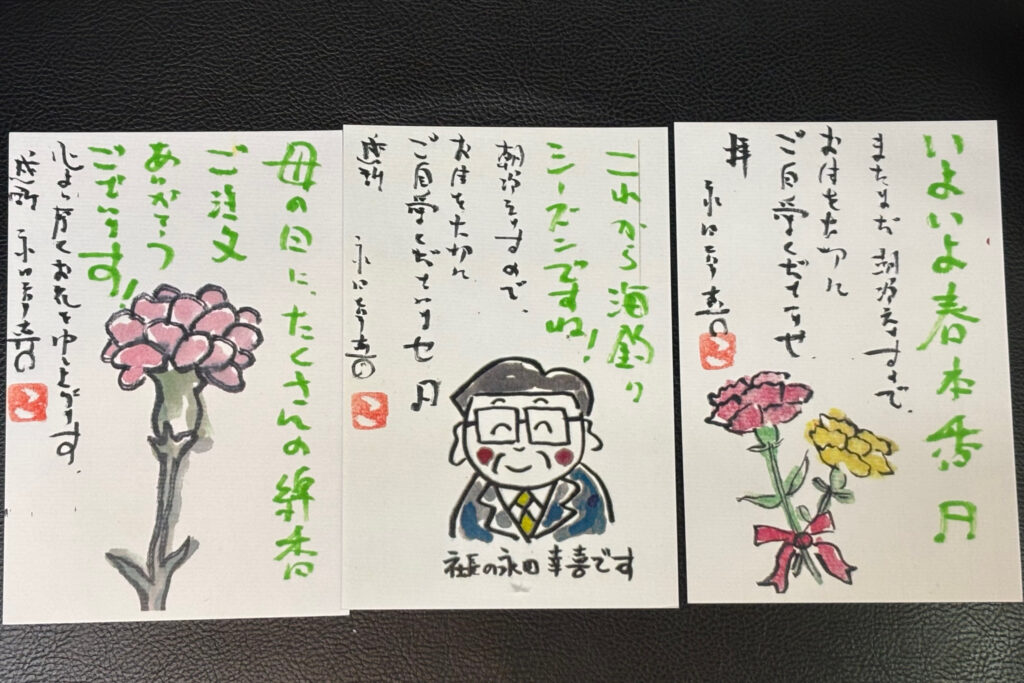 母の日に、たくさんの綿香
ご注文
ありがとう
ございます!
心より厚くお礼を申し上げます
感謝 永田幸喜
これから海釣り
シーズンですね!
朝冷えますので、
お体を大切に
ご自愛くださいませ
感謝 永田幸喜
社長の永田幸喜です
いよいよ春本番
まだまだ朝冷えますので、
お体を大切に
ご自愛くださいませ
拝 永田幸喜